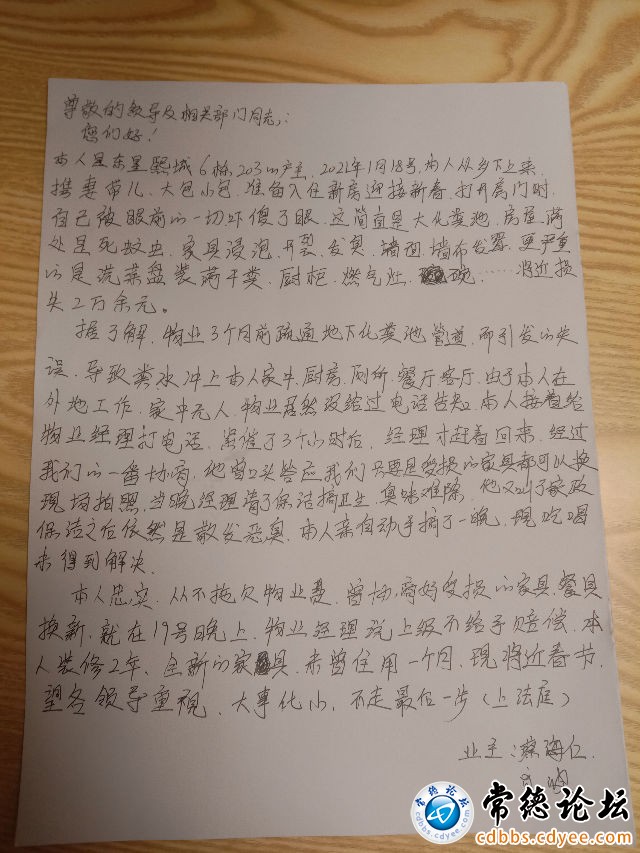 尊敬的领导及相关部门同志:
您们好!
本人是东星熙城6栋203的户主,2021年1月18号,本人从乡下上来,
携妻带儿、大包小包、准备入住新房迎接新春、打开房门时,
自己被眼前的一切吓傻了眼、这简直是大化粪池、房屋满
处是死蚊虫、家具浸泡、开裂、发臭、墙面墙布发霉、更严重
的是洗菜盘装满干粪、厨柜、燃气灶、碗……将近损
失2万余元。
据了解,物业3个月前疏通地下化粪池管道,而引发的失
误,导致粪水冲上本人家中、厨房、厕所、餐厅、客厅、由于本人在
外地工作,家中无人,物业居然没给过电话告知、本人接着给
物业经理打电话,虽催了3个小时后,经理才赶着回来,经过
我们的一番协商,他曾口头答应我们只要是受损的家具都可以换
现场拍照、当晚经理请了保洁搞卫生,臭味难除,他又叫了家政
保洁之后依然是散发恶臭,本人亲自动手搞了一晚,现吃喝
未得到解决.
本人忠实,从不拖欠物业费,曾协商好受损的家具、餐具
换新,就在19号晚上,物业经理说上级不给予赔偿、本
人装修2年,全新的家具,未曾住用一个月,现将近春节,
望各领导重视,大事化小,不走最后一步(上法庭)
业主:蔡海仁
常德论坛
cdbbs.cdyee.com